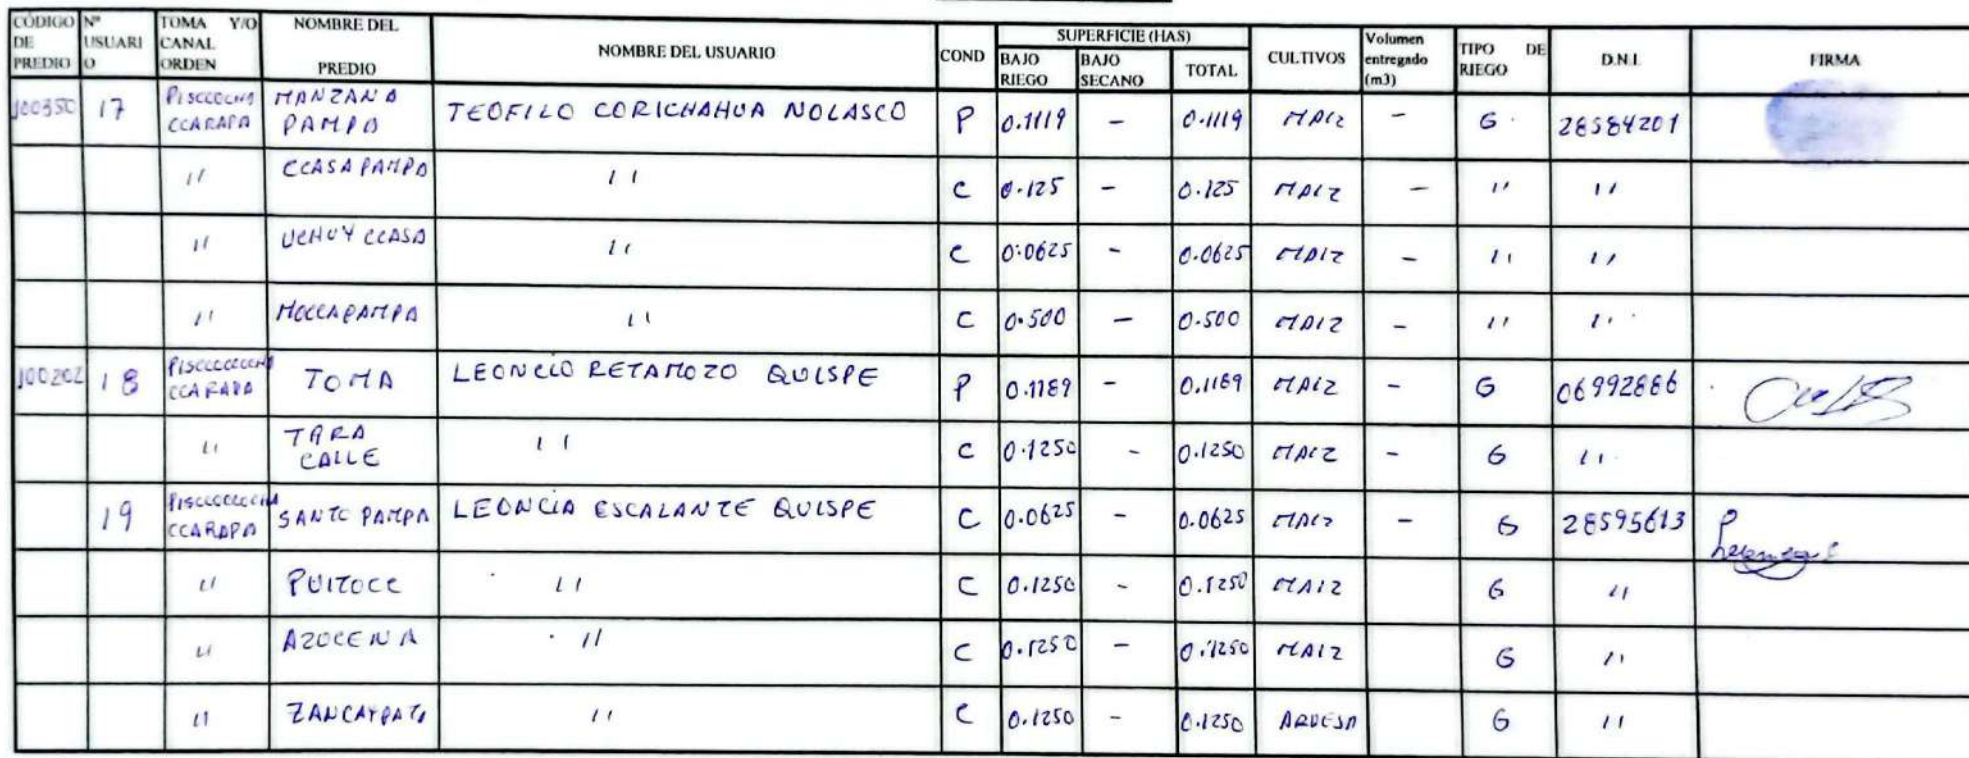 CÓDIGO DE PREDIO | Nº USUARIO | TOMA Y/O CANAL ORDEN | NOMBRE DEL PREDIO | NOMBRE DEL USUARIO | COND | SUPERFICIE (HAS) BAJO RIEGO | BAJO SECANO | TOTAL | CULTIVOS | Volumen entregado (m3) | TIPO DE RIEGO | D.N.I. | FIRMA
100350 | 17 | CCARAPA | MANZANA PAMPA | TEOFILO CORICHAHUA NOLASCO | P | 0.1119 | - | 0.1119 | MAIZ | - | G | 28584201
" | CCASAPAMPA | " | C | 0.125 | - | 0.125 | MAIZ | - | " | "
" | UCHUY CCASA | " | C | 0.0625 | - | 0.0625 | MAIZ | - | " | "
" | MOCCAPAMPA | " | C | 0.500 | - | 0.500 | MAIZ | - | " | "
100202 | 18 | CCARAPA | TOMA | LEONCIO RETAMOZO QUISPE | P | 0.1189 | - | 0.1189 | MAIZ | - | G | 06992886
" | TARA CALLE | " | C | 0.1250 | - | 0.1250 | MAIZ | - | G | "
19 | CCARAPA | SANTO PAMPA | LEONCIA ESCALANTE QUISPE | C | 0.0625 | - | 0.0625 | MAIZ | - | G | 28595613
" | PUITOCC | " | C | 0.1250 | - | 0.1250 | MAIZ | G | "
" | AZOCENA | " | C | 0.1250 | - | 0.1250 | MAIZ | G | "
" | " | C | 0.1250 | - | 0.1250 | ARVEJA | G | "